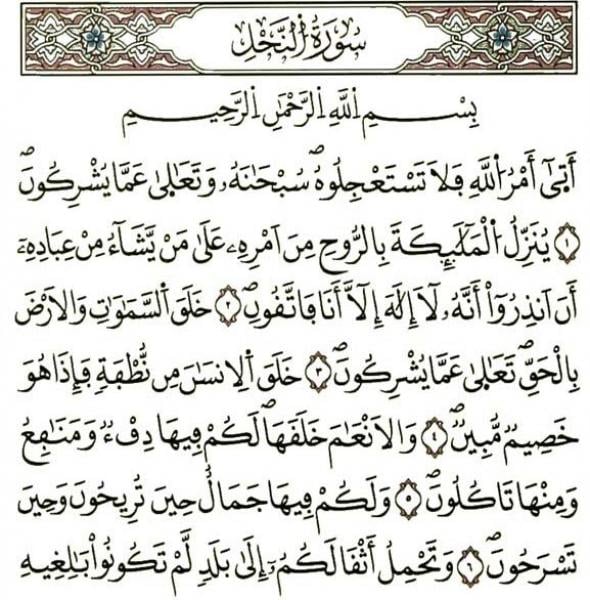 سُورَةُ النَّحْلِ
بِسْمِ اِللَّهِ اِلرَّحْمَٰنِ اِلرَّحِيمِ
أَتٜىٰٓ أَمْرُ اُللَّهِ فَلَا تَسْتَعْجِلُوهُۖ سُبْحَٰنَهُۥ وَتَعَٰلَىٰ عَمَّا يُشْرِكُونَۖ
۝١ يُنَزِّلُ اُلْمَلَٰٓئِكَةَ بِالرُّوحِ مِنَ اَمْرِهِۦ عَلَىٰ مَنْ يَّشَآءُ مِنْ عِبَادِهِۦٓ
أَنَ اَنذِرُوٓاْ أَنَّهُۥ لَآ إِلَٰهَ إِلَّآ أَنَا فَاتَّقُونِۖ ۝٢ خَلَقَ اَلسَّمَٰوَٰتِ وَالَارْضَ
بِالْحَقِّۖ تَعَٰلَىٰ عَمَّا يُشْرِكُونَۖ ۝٣ خَلَقَ اَلِانسَٰنَ مِن نُّطْفَةٍ فَإِذَا هُوَ
خَصِيمٌ مُّبِينٌۖ ۝٤ وَالَانْعَٰمَ خَلَقَهَاۖ لَكُمْ فِيهَا دِفْءٌ وَمَنَٰفِعُ
وَمِنْهَا تَاكُلُونَۖ ۝٥ وَلَكُمْ فِيهَا جَمَالٌ حِينَ تُرِيحُونَ وَحِينَ
تَسْرَحُونَۖ ۝٦ وَتَحْمِلُ أَثْقَالَكُمُۥٓ إِلَىٰ بَلَدٍ لَّمْ تَكُونُواْ بَٰلِغِيهِ